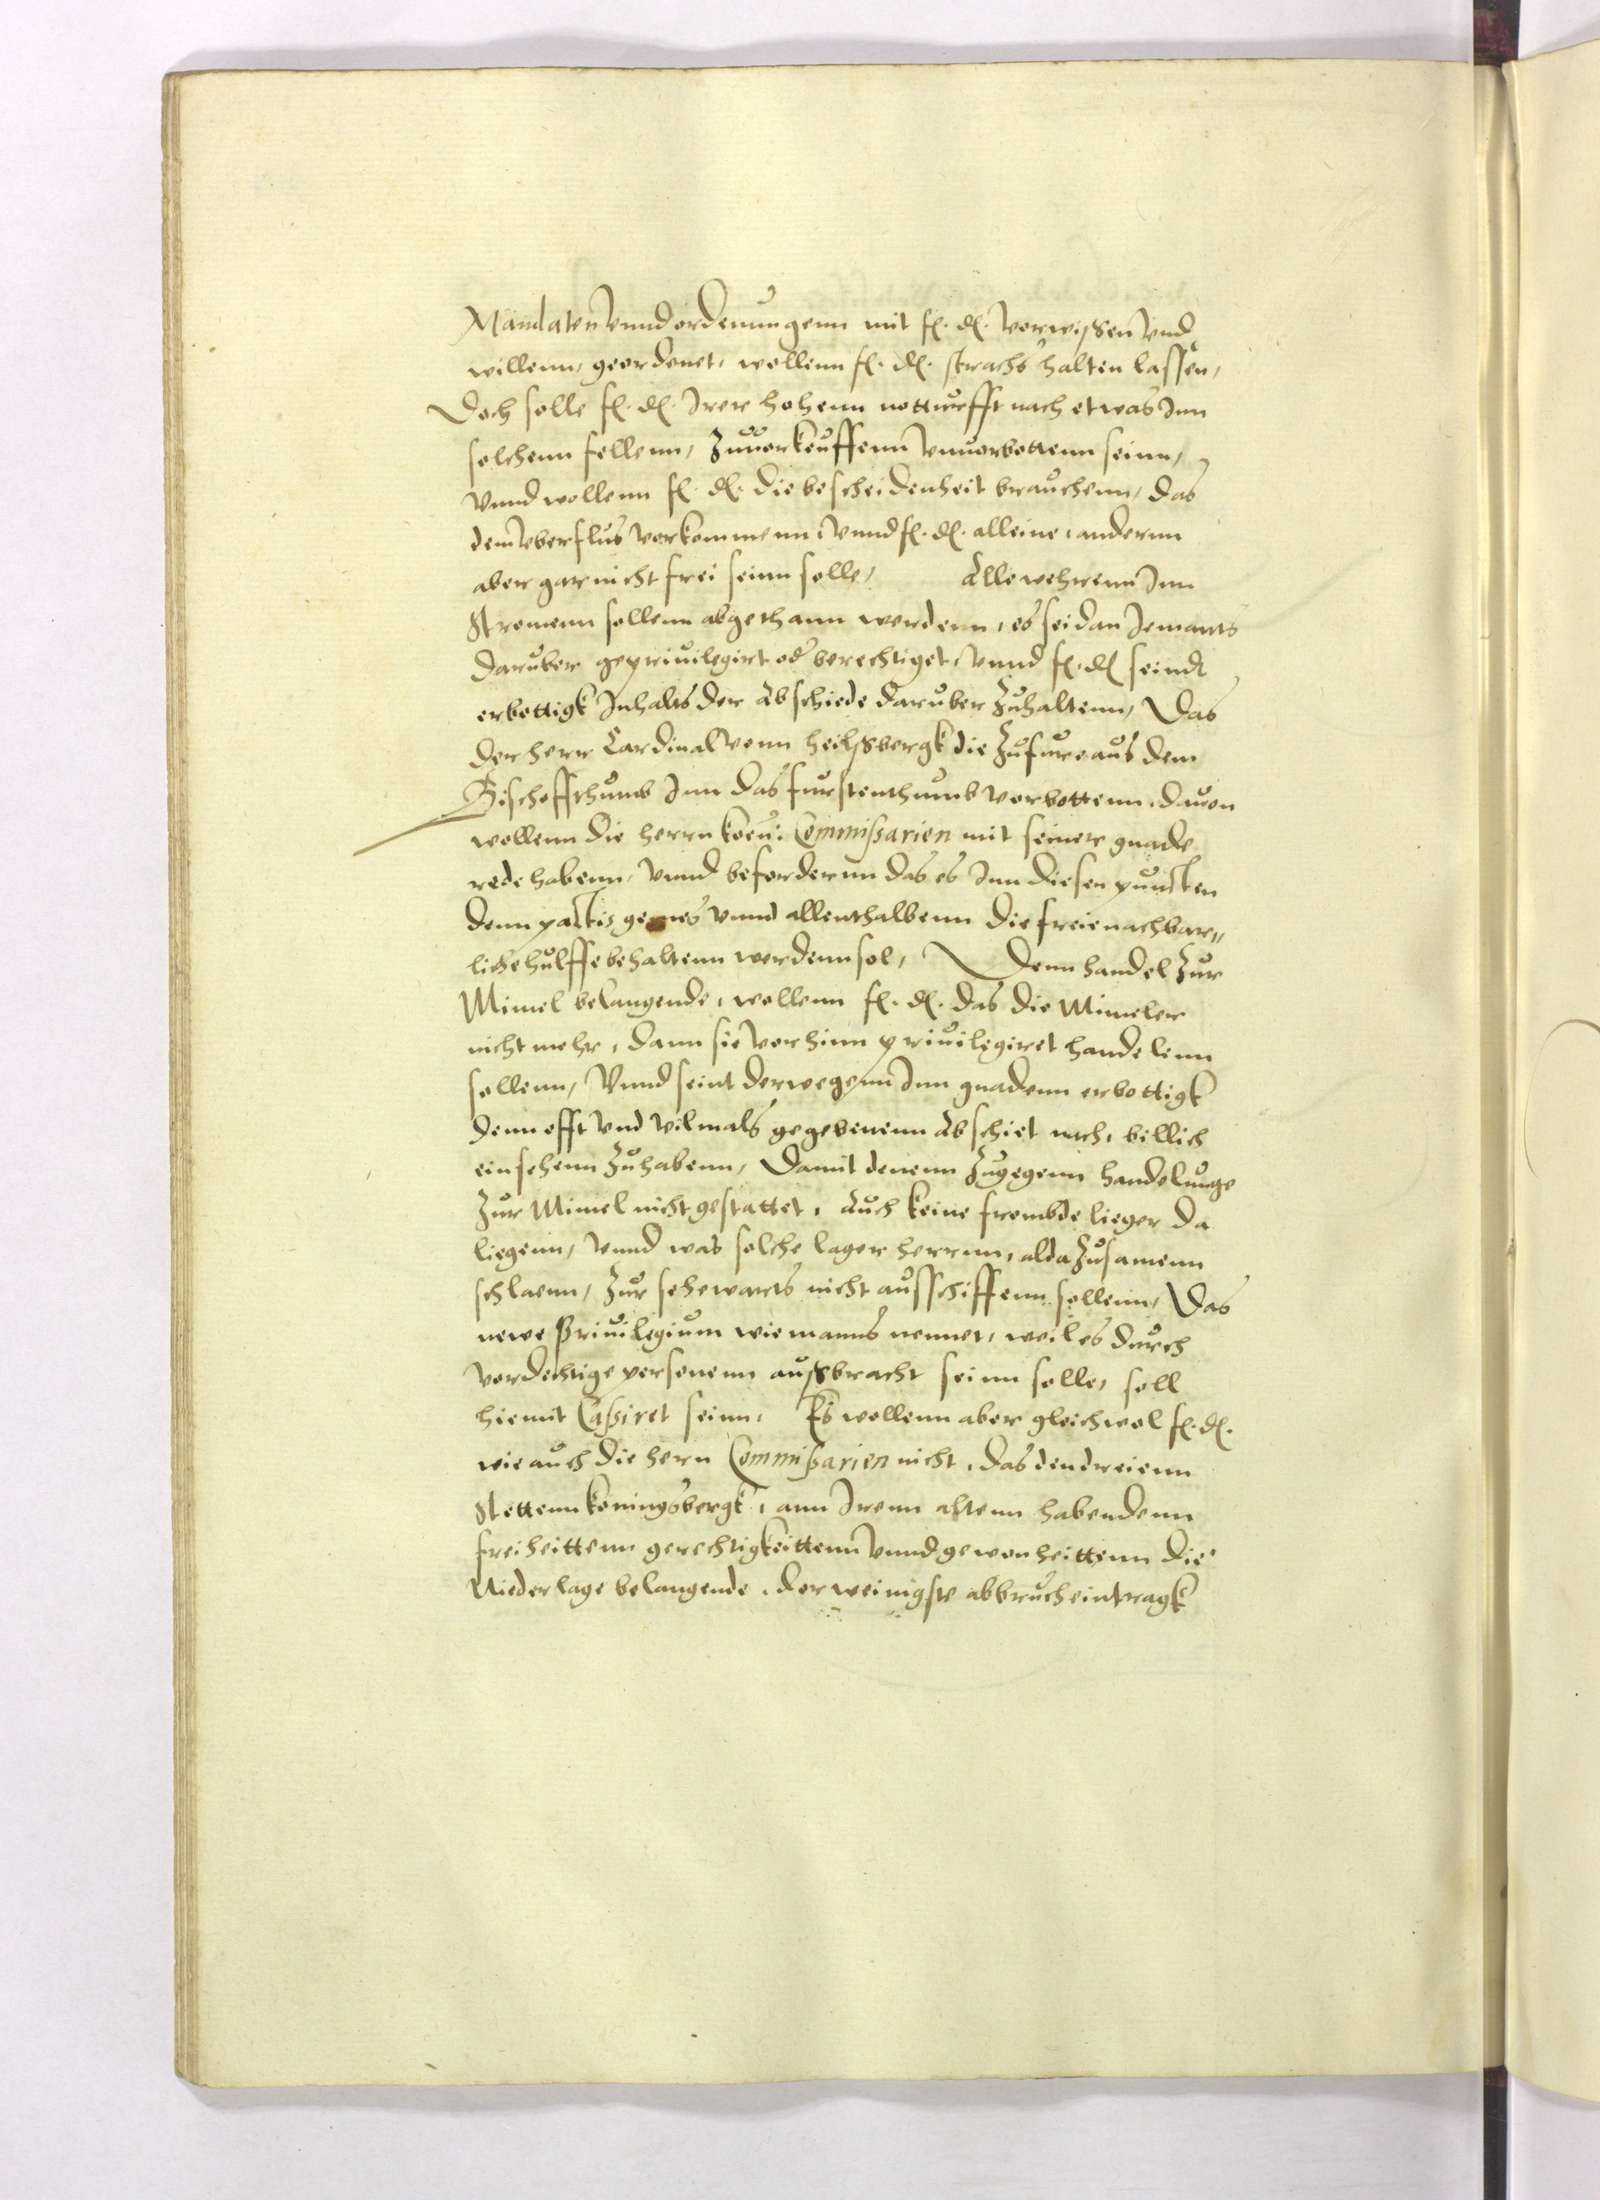 Mandaten vnnd ordenungenn mit f. d. vorwissen vnd
willenn, geordenet, wollenn f. d. stracks halten lassen,
Doch solle f. d. Irer hohenn notturfft nach etwas Inn
solchenn fellenn, zuuorkeuffenn vnuorbottenn seinn,
vnnd wollenn f. d. die bescheidenheit brauchenn, das
dem vberflus vorkommenn, vnnd f. d. alleine, anderun
aber gar nicht frei seinn solle, Alle wehrenn Inn
Stromenn sollenn abgethann werdenn, es sei dan Jemants
daruber gepriuilegirt od berechtiget, vnnd f. d. seindt
erbottigk Inhalts der Abschiede daruber zuhaltenn, Das
der herr Cardinal vonn heilßbergk die zufure aus dem
Bischoffthumb Inn das furstenthumb vorbottenn, dauon
wollenn die herrn koen: Commissarien mit seiner gnade
rede habenn, vnnd befordernn das es Inn diesen puncten
denn pactis gemes vnnd allenthalbenn die freie nachbar„
liche hulffe behaltenn werdenn sol, Denn handel zur
Mimel belangende, wollenn f. d. das die Mimeler
nicht mehr, dann sie vorhinn priuilegiret handelenn
sollenn, Vnnd seint derwegenn Inn gnadenn erbottigk
denn offt vnd vilmals gegebenenn Abschiet nach, billich
einsehenn zuhabenn, Damit denenn zugegenn handelunge
zur Mimel nicht gestattet, Auch keine frembde lieger da
liegenn, vnnd was solche lager herrnn, alda zusamenn
schlaenn, zur sehewarts nicht ausschiffenn sollenn, Das
newe Priuilegium wie manns nennet, weil es durch
vordechtige personenn außbracht seinn solle, soll
hiemit Cassiret seinn, Es wollenn aber gleichwol f. d.
wie auch die hern Commissarien nicht, das den dreienn
Stettenn koningsbergk, ann Irenn altenn habendenn
freiheittenn gerechtigkeittenn vnnd gewonheittenn die
Niederlage belangende, der weinigste abbruch eintragk